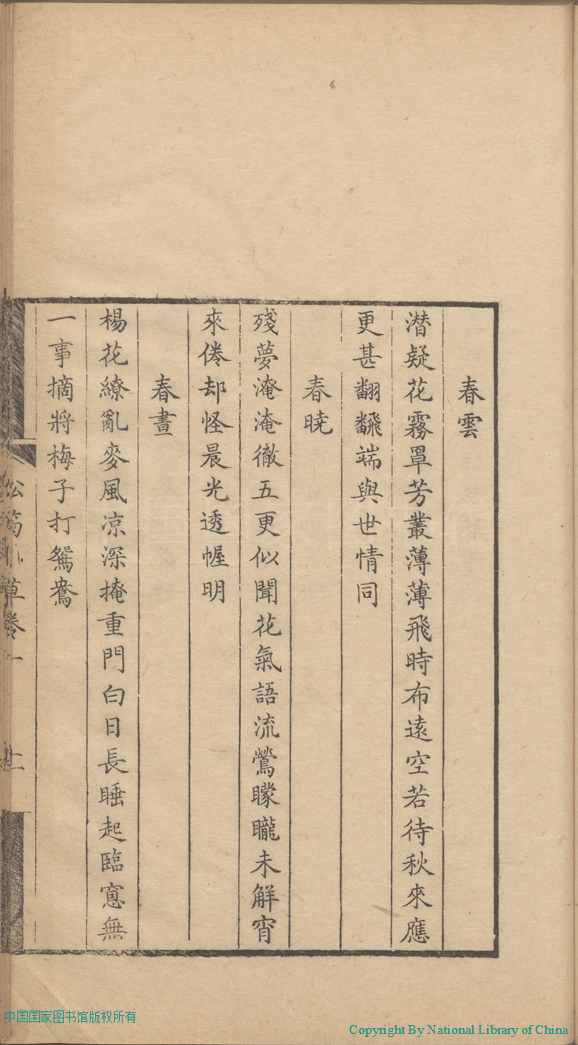 春雲
潜疑花霧罩芳叢薄薄飛時布遠空若待秋來應
更甚翻飜端與世情同
春曉
殘夢淹淹徹五更似聞花氣語流鶯矇矓未解宵
來倦却怪晨光透幄明
春晝
楊花繚亂麥風凉深掩重門白日長睡起臨窻無
一事摘將梅子打鴛鴦
草卷一
中国国家图书馆版权所有
Copyright By National Library of China